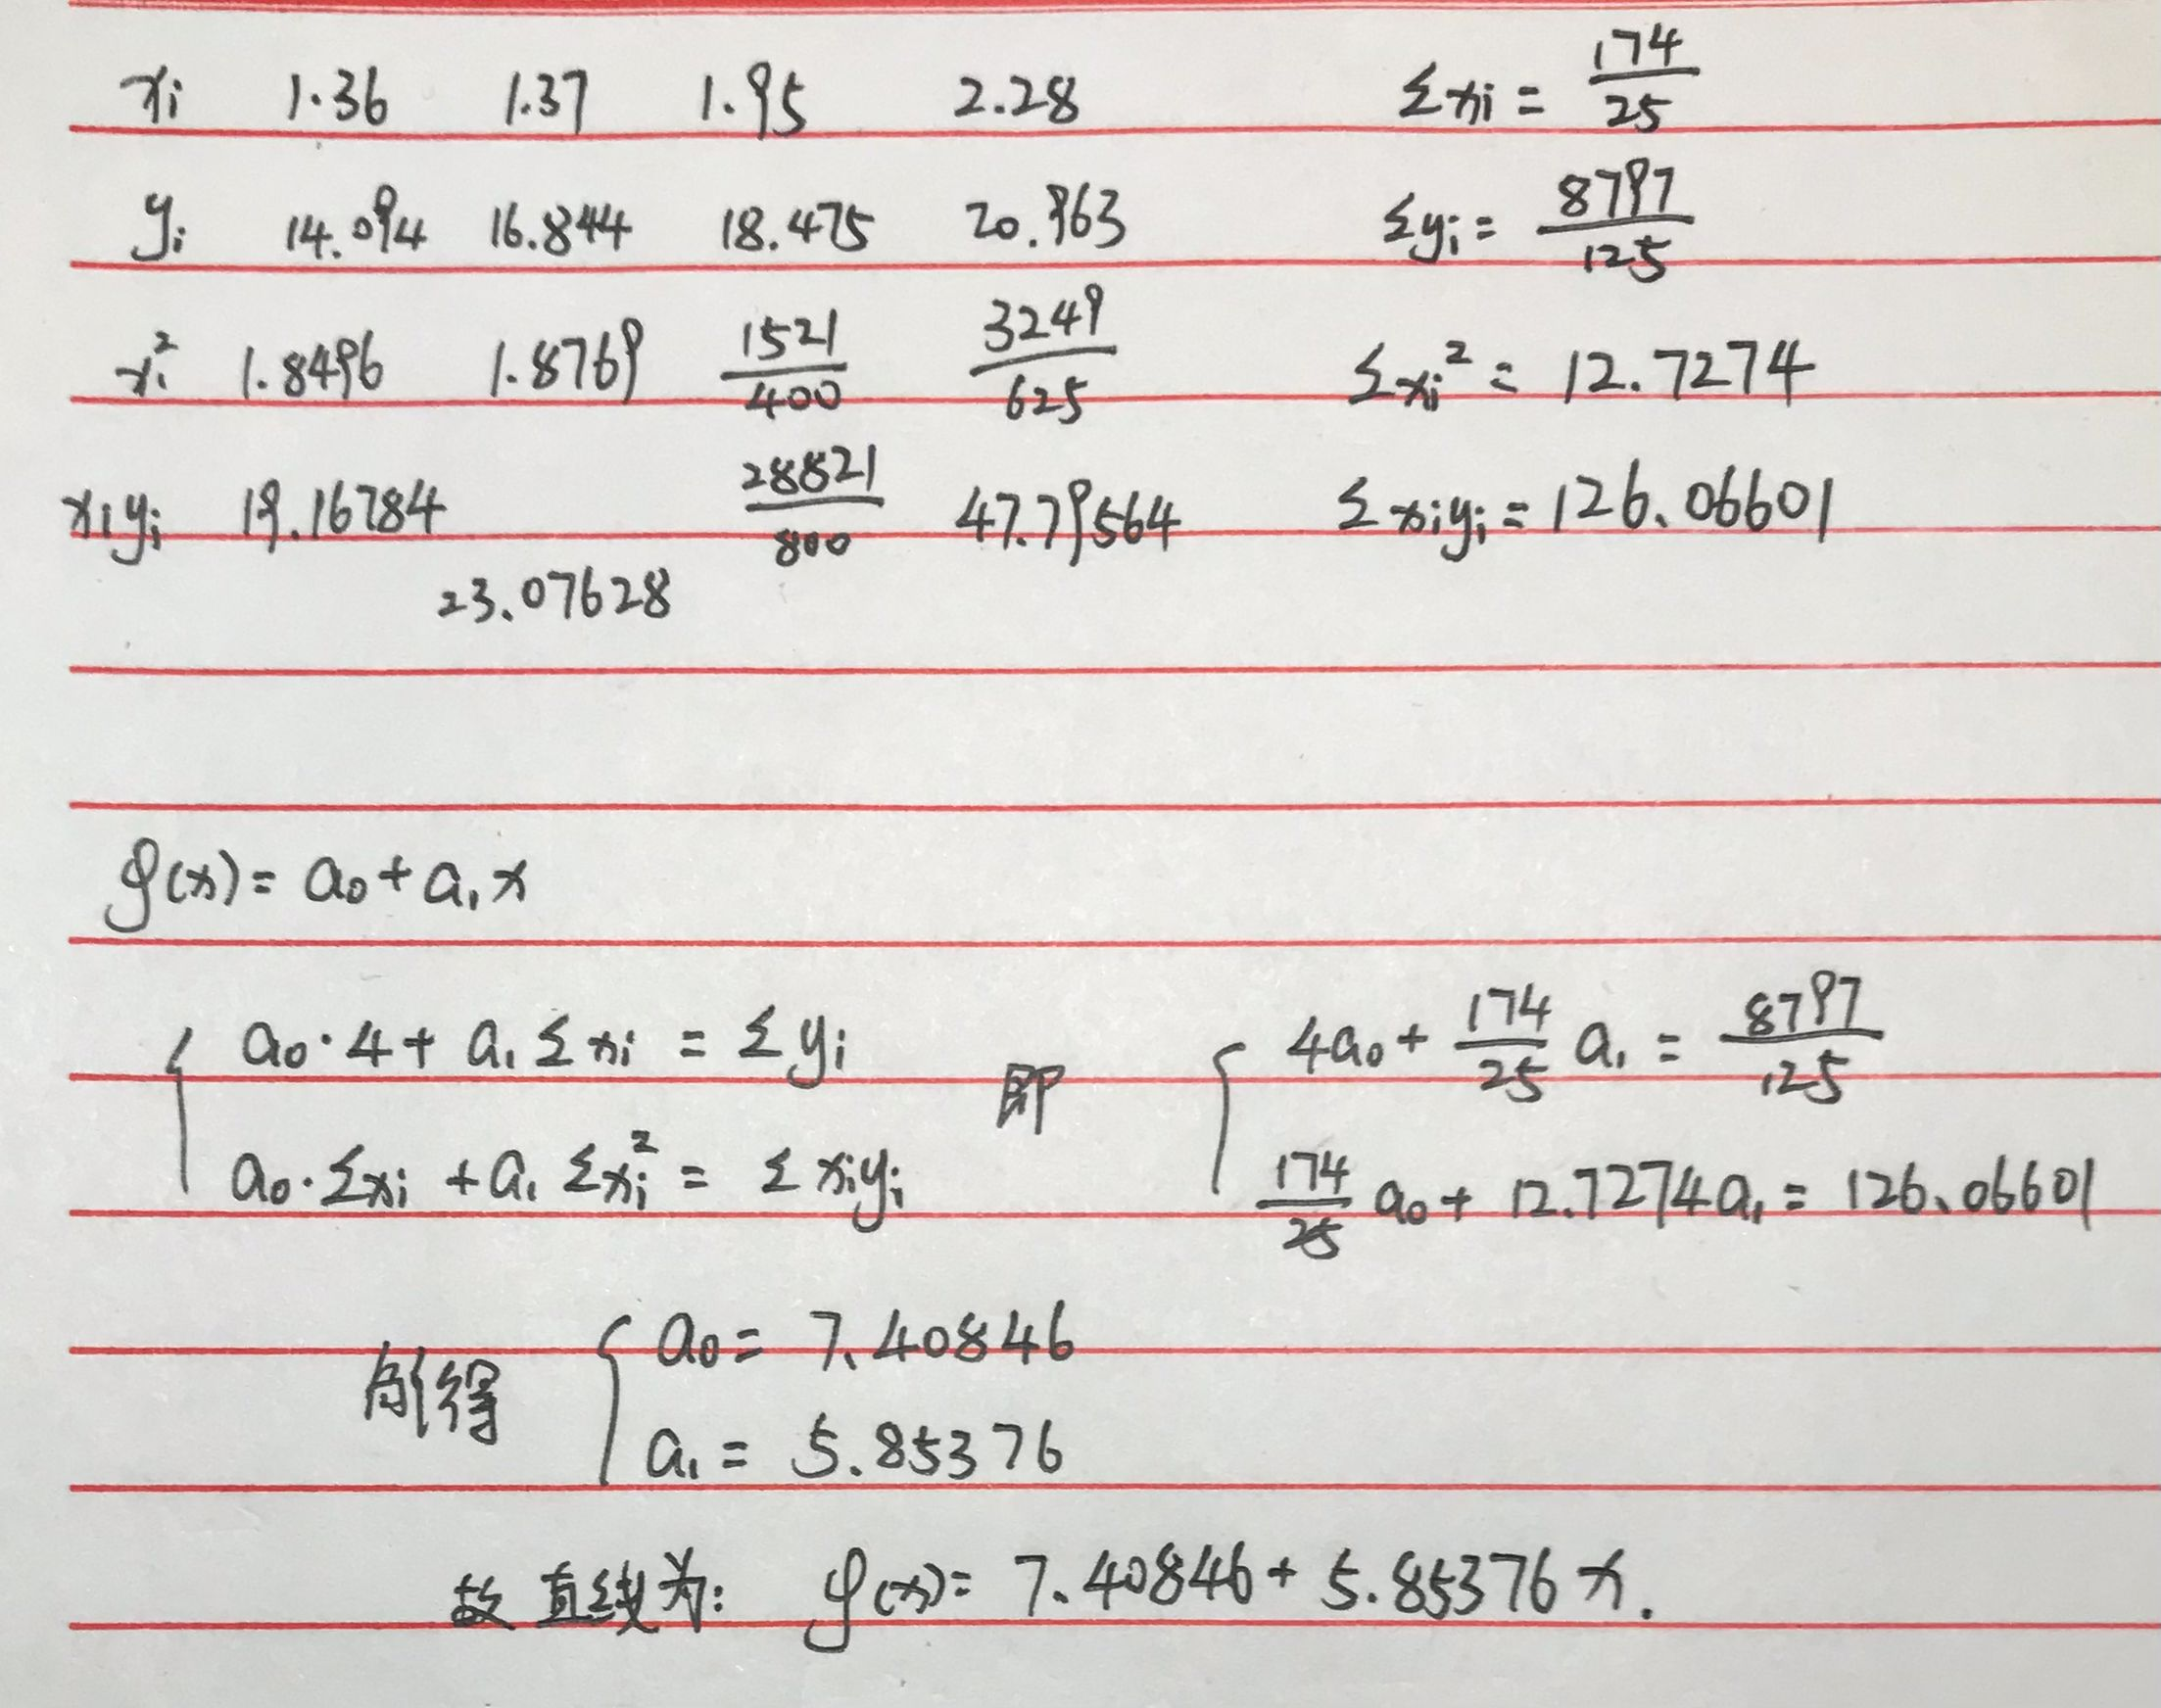 xi 1.36 1.37 1.95 2.28 Σxi = 174/25
yi 14.094 16.844 18.475 20.963 Σyi = 8797/125
xi² 1.8496 1.8769 1521/400 3249/625 Σxi² = 12.7274
xiyi 19.16784 23.07628 28821/800 47.79564 Σxiyi = 126.06601
φ(x) = a₀ + a₁x
{ a₀·4 + a₁Σxi = Σyi 即 { 4a₀ + 174/25 a₁ = 8797/125
a₀·Σxi + a₁Σxi² = Σxiyi 174/25 a₀ + 12.7274a₁ = 126.06601
解得 { a₀ = 7.40846
a₁ = 5.85376
故直线为: φ(x) = 7.40846 + 5.85376x.